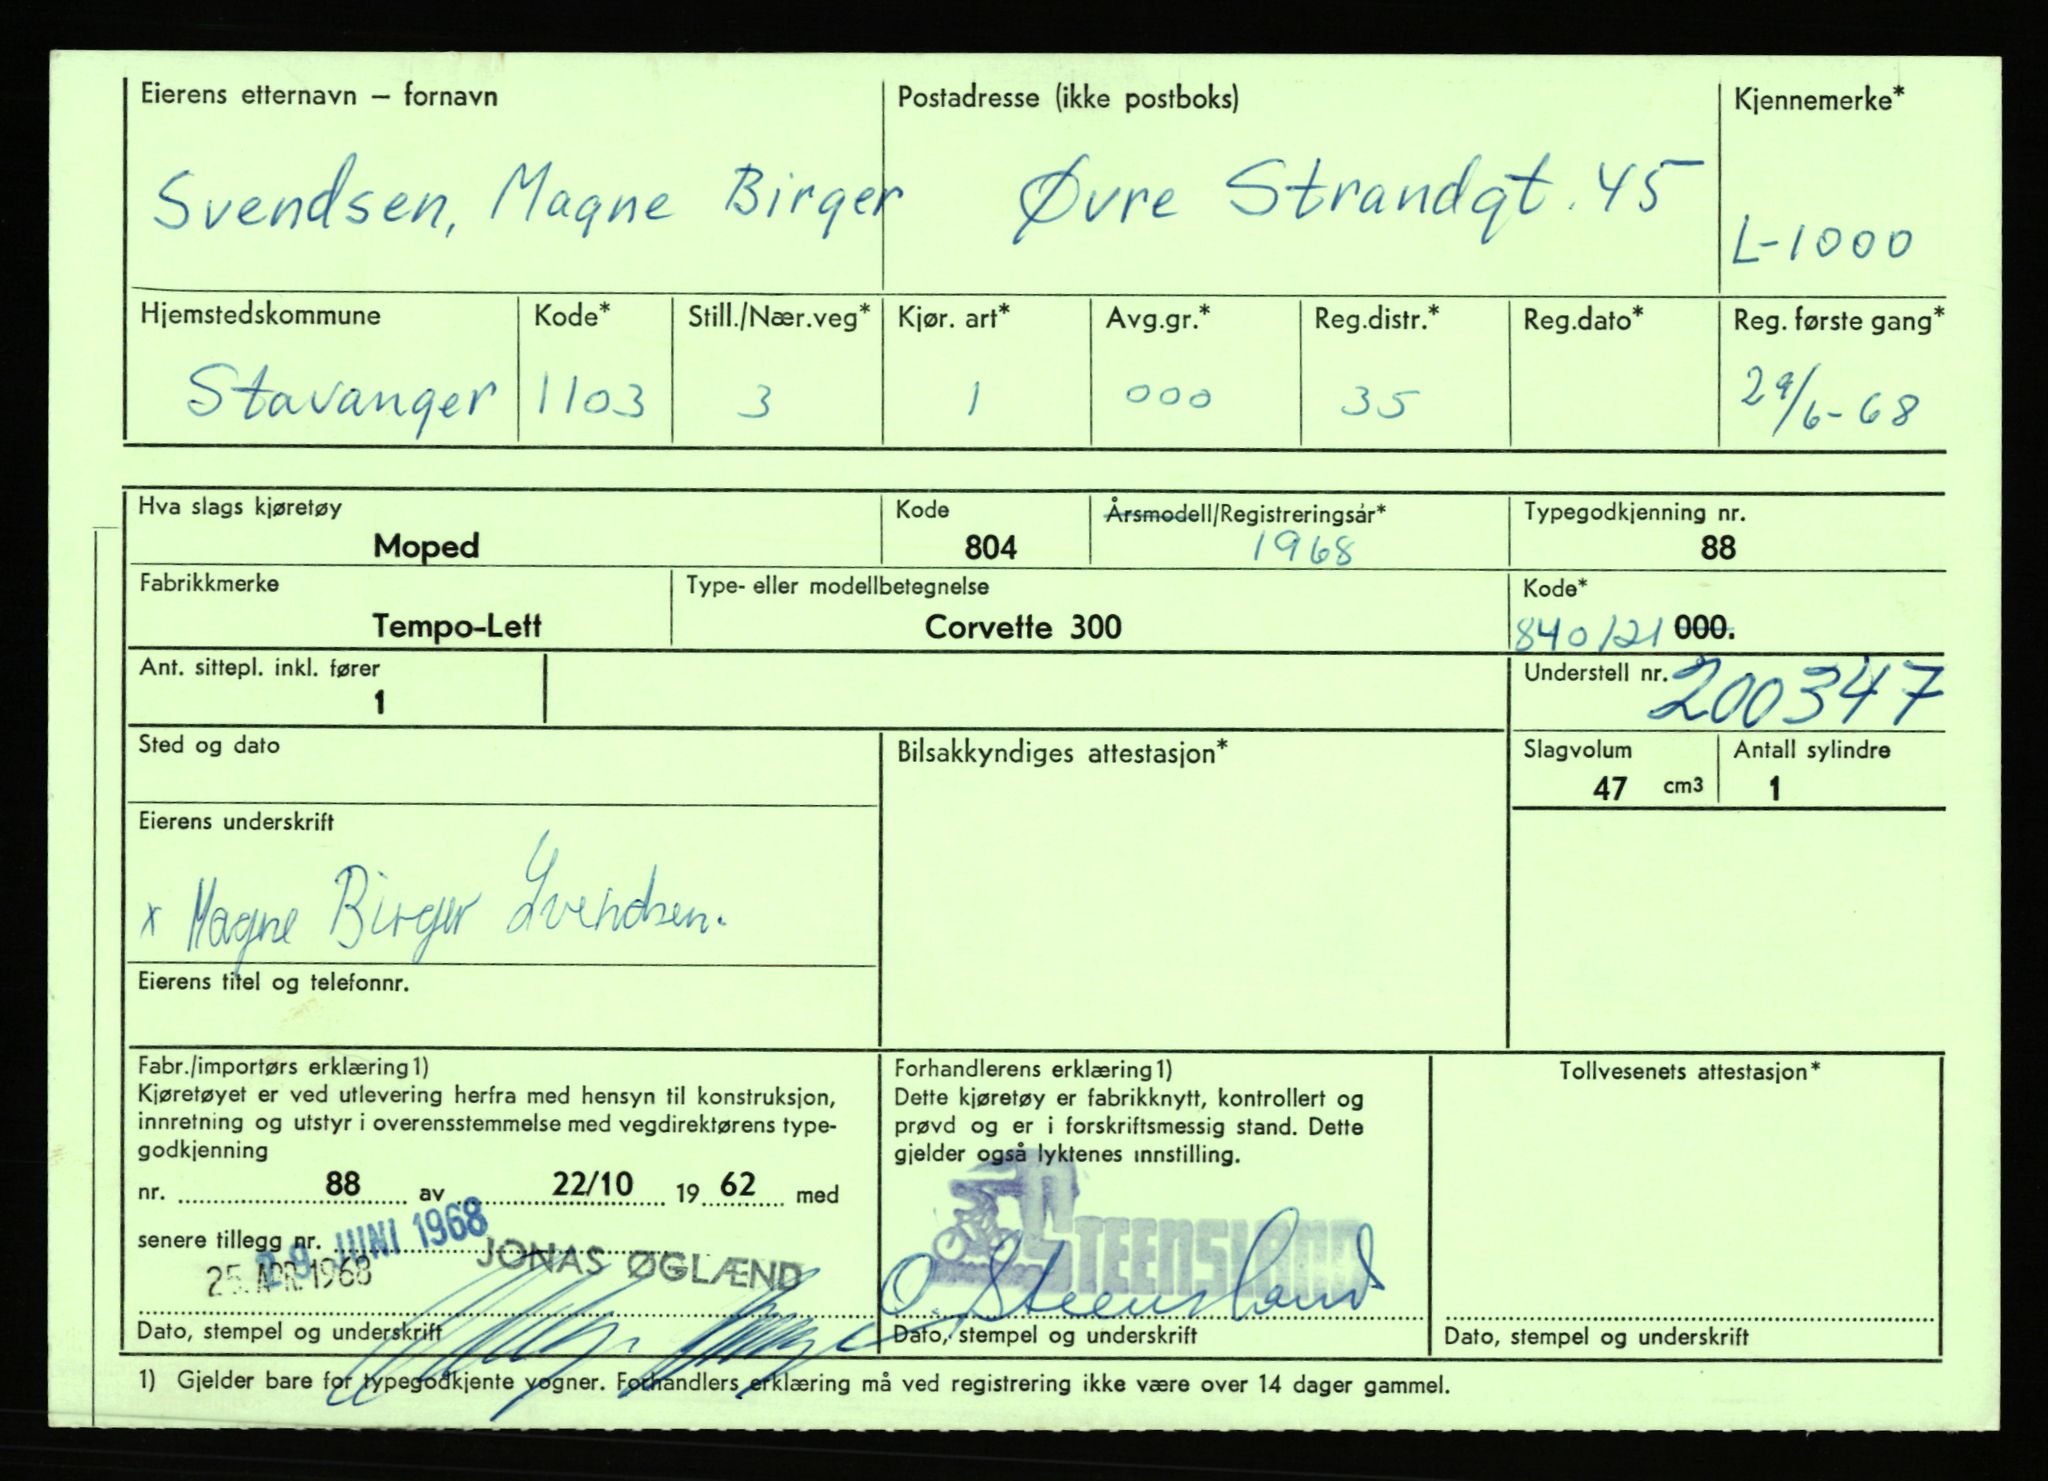 Eierens etternavn – fornavn
Postadresse (ikke postboks)
Kjennemerke*
Svendsen, Magne Birger
Øvre Strandgt. 45
L-1000
Hjemstedskommune
Kode*
Still./Nær.veg*
Kjør. art*
Avg.gr.*
Reg.distr.*
Reg.dato*
Reg. første gang*
Stavanger
1103
3
1
000
35
29/6-68
Hva slags kjøretøy
Kode
Årsmodell/Registreringsår*
Typegodkjenning nr.
Moped
804
1968
88
Fabrikkmerke
Type- eller modellbetegnelse
Kode*
Tempo-Lett
Corvette 300
840121 000.
Ant. sittepl. inkl. fører
1
Understell nr. 200347
Sted og dato
Bilsakkyndiges attestasjon*
Slagvolum
Antall sylindre
47 cm3
1
Eierens underskrift
x Magne Birger Svendsen.
Eierens titel og telefonnr.
Fabr./importørs erklæring1)
Kjøretøyet er ved utlevering herfra med hensyn til konstruksjon,
innretning og utstyr i overensstemmelse med vegdirektørens type-
godkjenning
nr. 88 av 22/10 19 62 med
senere tillegg nr.
29 JUNI 1968
25. APR. 1968
JONAS ØGLÆND
Dato, stempel og underskrift
Forhandlerens erklæring1)
Dette kjøretøy er fabrikknytt, kontrollert og
prøvd og er i forskriftsmessig stand. Dette
gjelder også lyktenes innstilling.
STEENSLAND
O. Steensland
Dato, stempel og underskrift
Tollvesenets attestasjon*
Dato, stempel og underskrift
1) Gjelder bare for typegodkjente vogner. Forhandlers erklæring må ved registrering ikke være over 14 dager gammel.